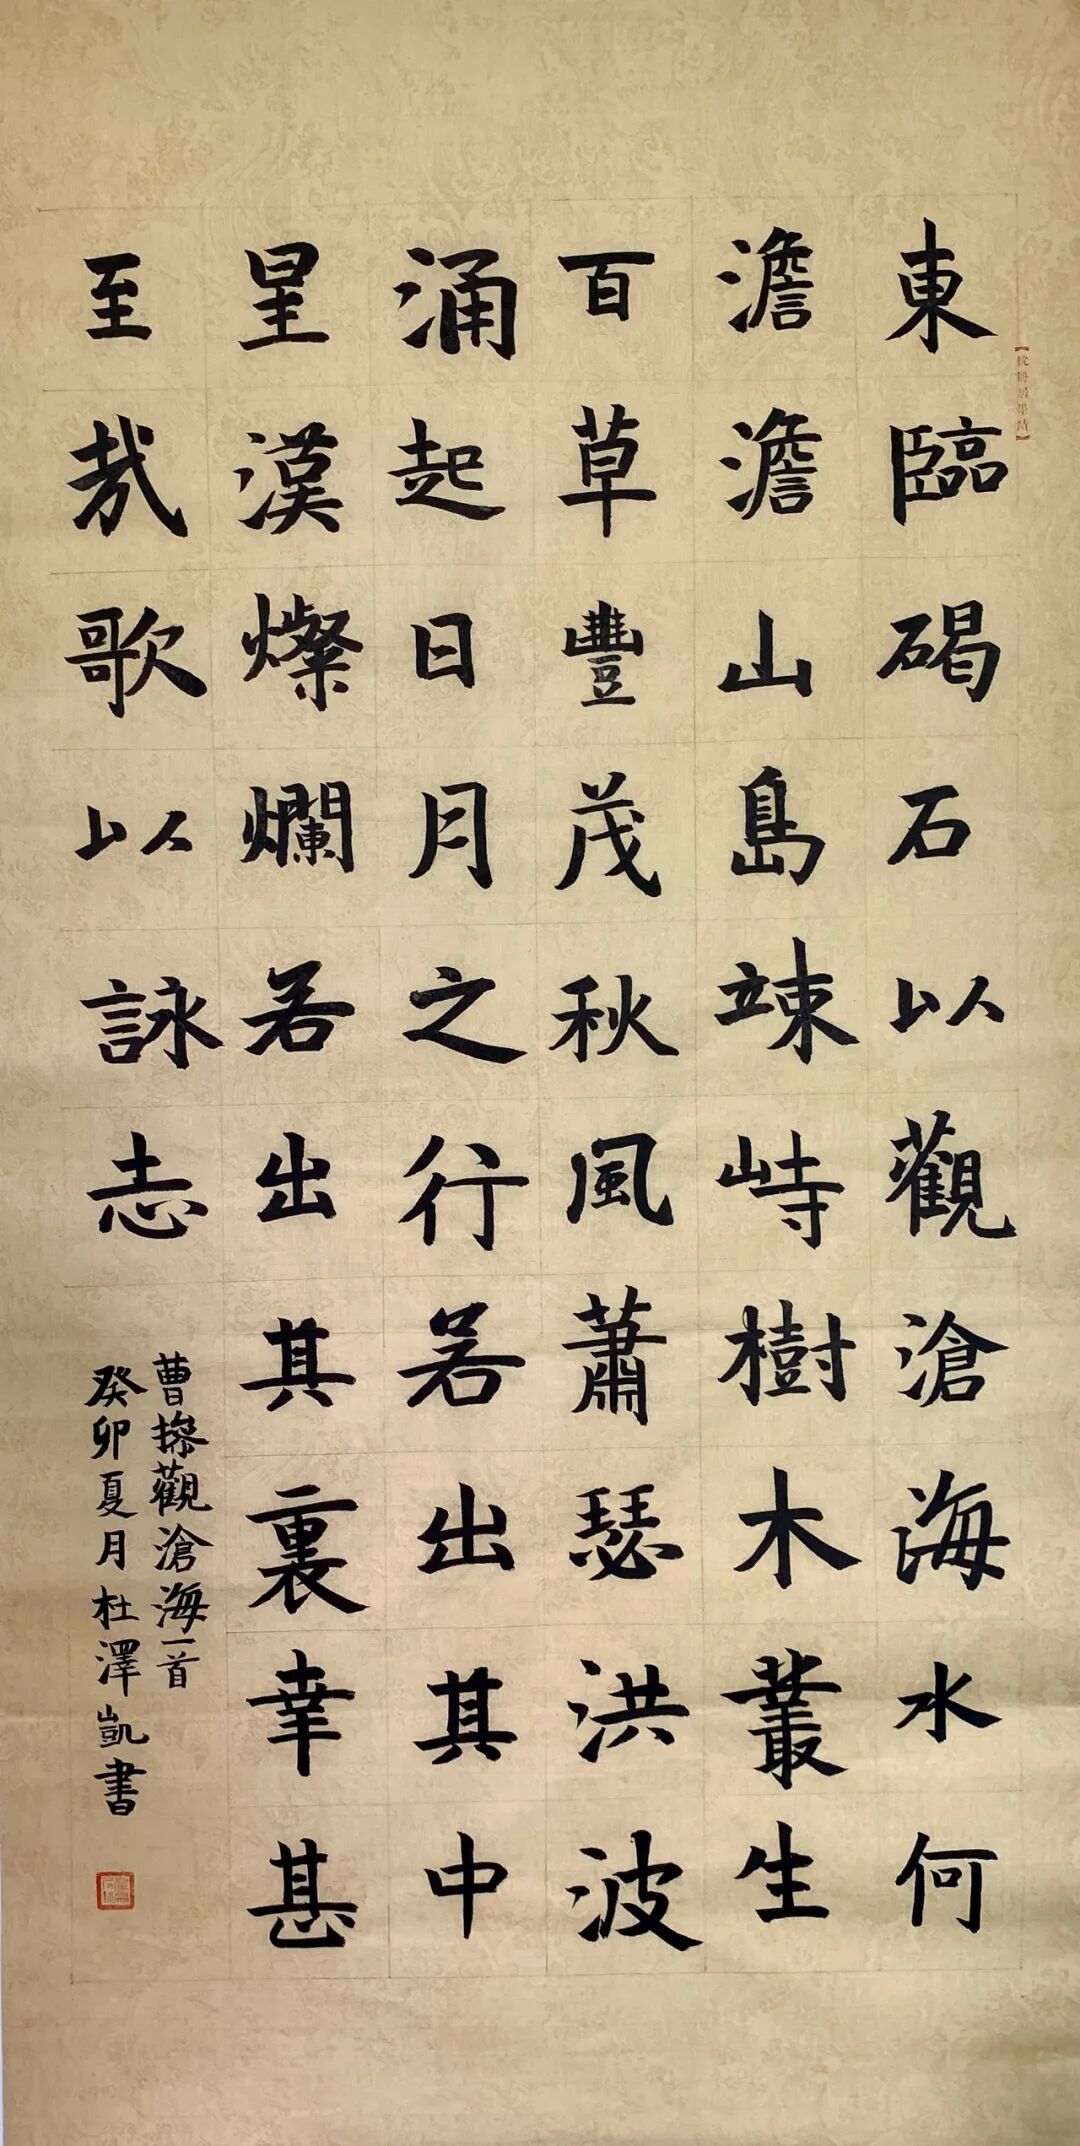 東臨碣石以觀滄海水何
澹澹山島竦峙樹木叢生
百草豐茂秋風蕭瑟洪波
涌起日月之行若出其中
星漢燦爛若出其裏幸甚
至哉歌以詠志
曹操觀滄海一首
癸卯夏月杜澤凱書